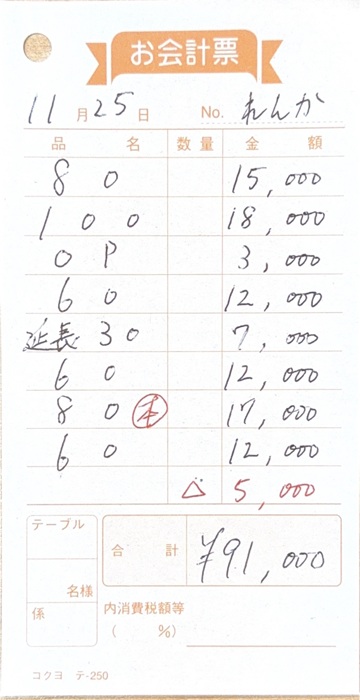 お会計票
11月25日 No. れんか
品名 数量 金額
80 15,000
100 18,000
OP 3,000
60 12,000
延長30 7,000
60 12,000
80 本 17,000
60 12,000
△ 5,000
テーブル
名様
係
合計 ¥91,000
内消費税額等
( %)
コクヨ テ-250